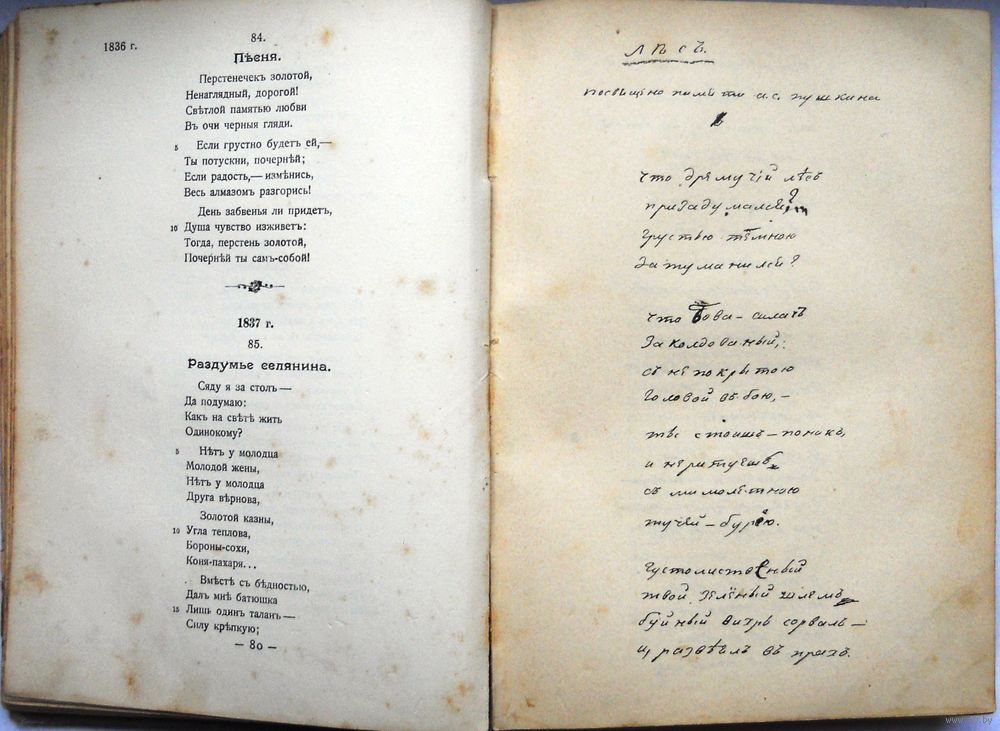 1836 г.
84.
Пѣсня.
Перстенечекъ золотой,
Ненаглядный, дорогой!
Свѣтлой памятью любви
Въ очи черныя гляди.
5 Если грустно будетъ ей,—
Ты потускни, почернѣй;
Если радость,— измѣнись,
Весь алмазомъ разгорись!
День забвенья ли придетъ,
10 Душа чувство изживетъ:
Тогда, перстень золотой,
Почернѣй ты самъ-собой!
1837 г.
85.
Раздумье селянина.
Сяду я за столъ —
Да подумаю:
Какъ на свѣтѣ жить
Одинокому?
5 Нѣтъ у молодца
Молодой жены,
Нѣтъ у молодца
Друга вѣрнова,
Золотой казны,
10 Угла теплова,
Бороны-сохи,
Коня-пахаря...
Вмѣстѣ съ бѣдностью,
Далъ мнѣ батюшка
15 Лишь одинъ талан —
Силу крѣпкую;
— 80 —
Лѣсъ.
посвящено памяти А.С. Пушкина
Что дремучій лѣсъ
призадумался,
Грустью тёмною
Затуманился?
Что Бова-силачъ
Заколдованый,
съ непокрытою
Головой въ бою,—
ты стоишь – поникъ,
и не ратуешь
съ мимолётною
тучей – бурею.
Густолиственный
твой зелёный шлемъ
буйный вихрь сорвалъ —
и развѣялъ въ прахъ.